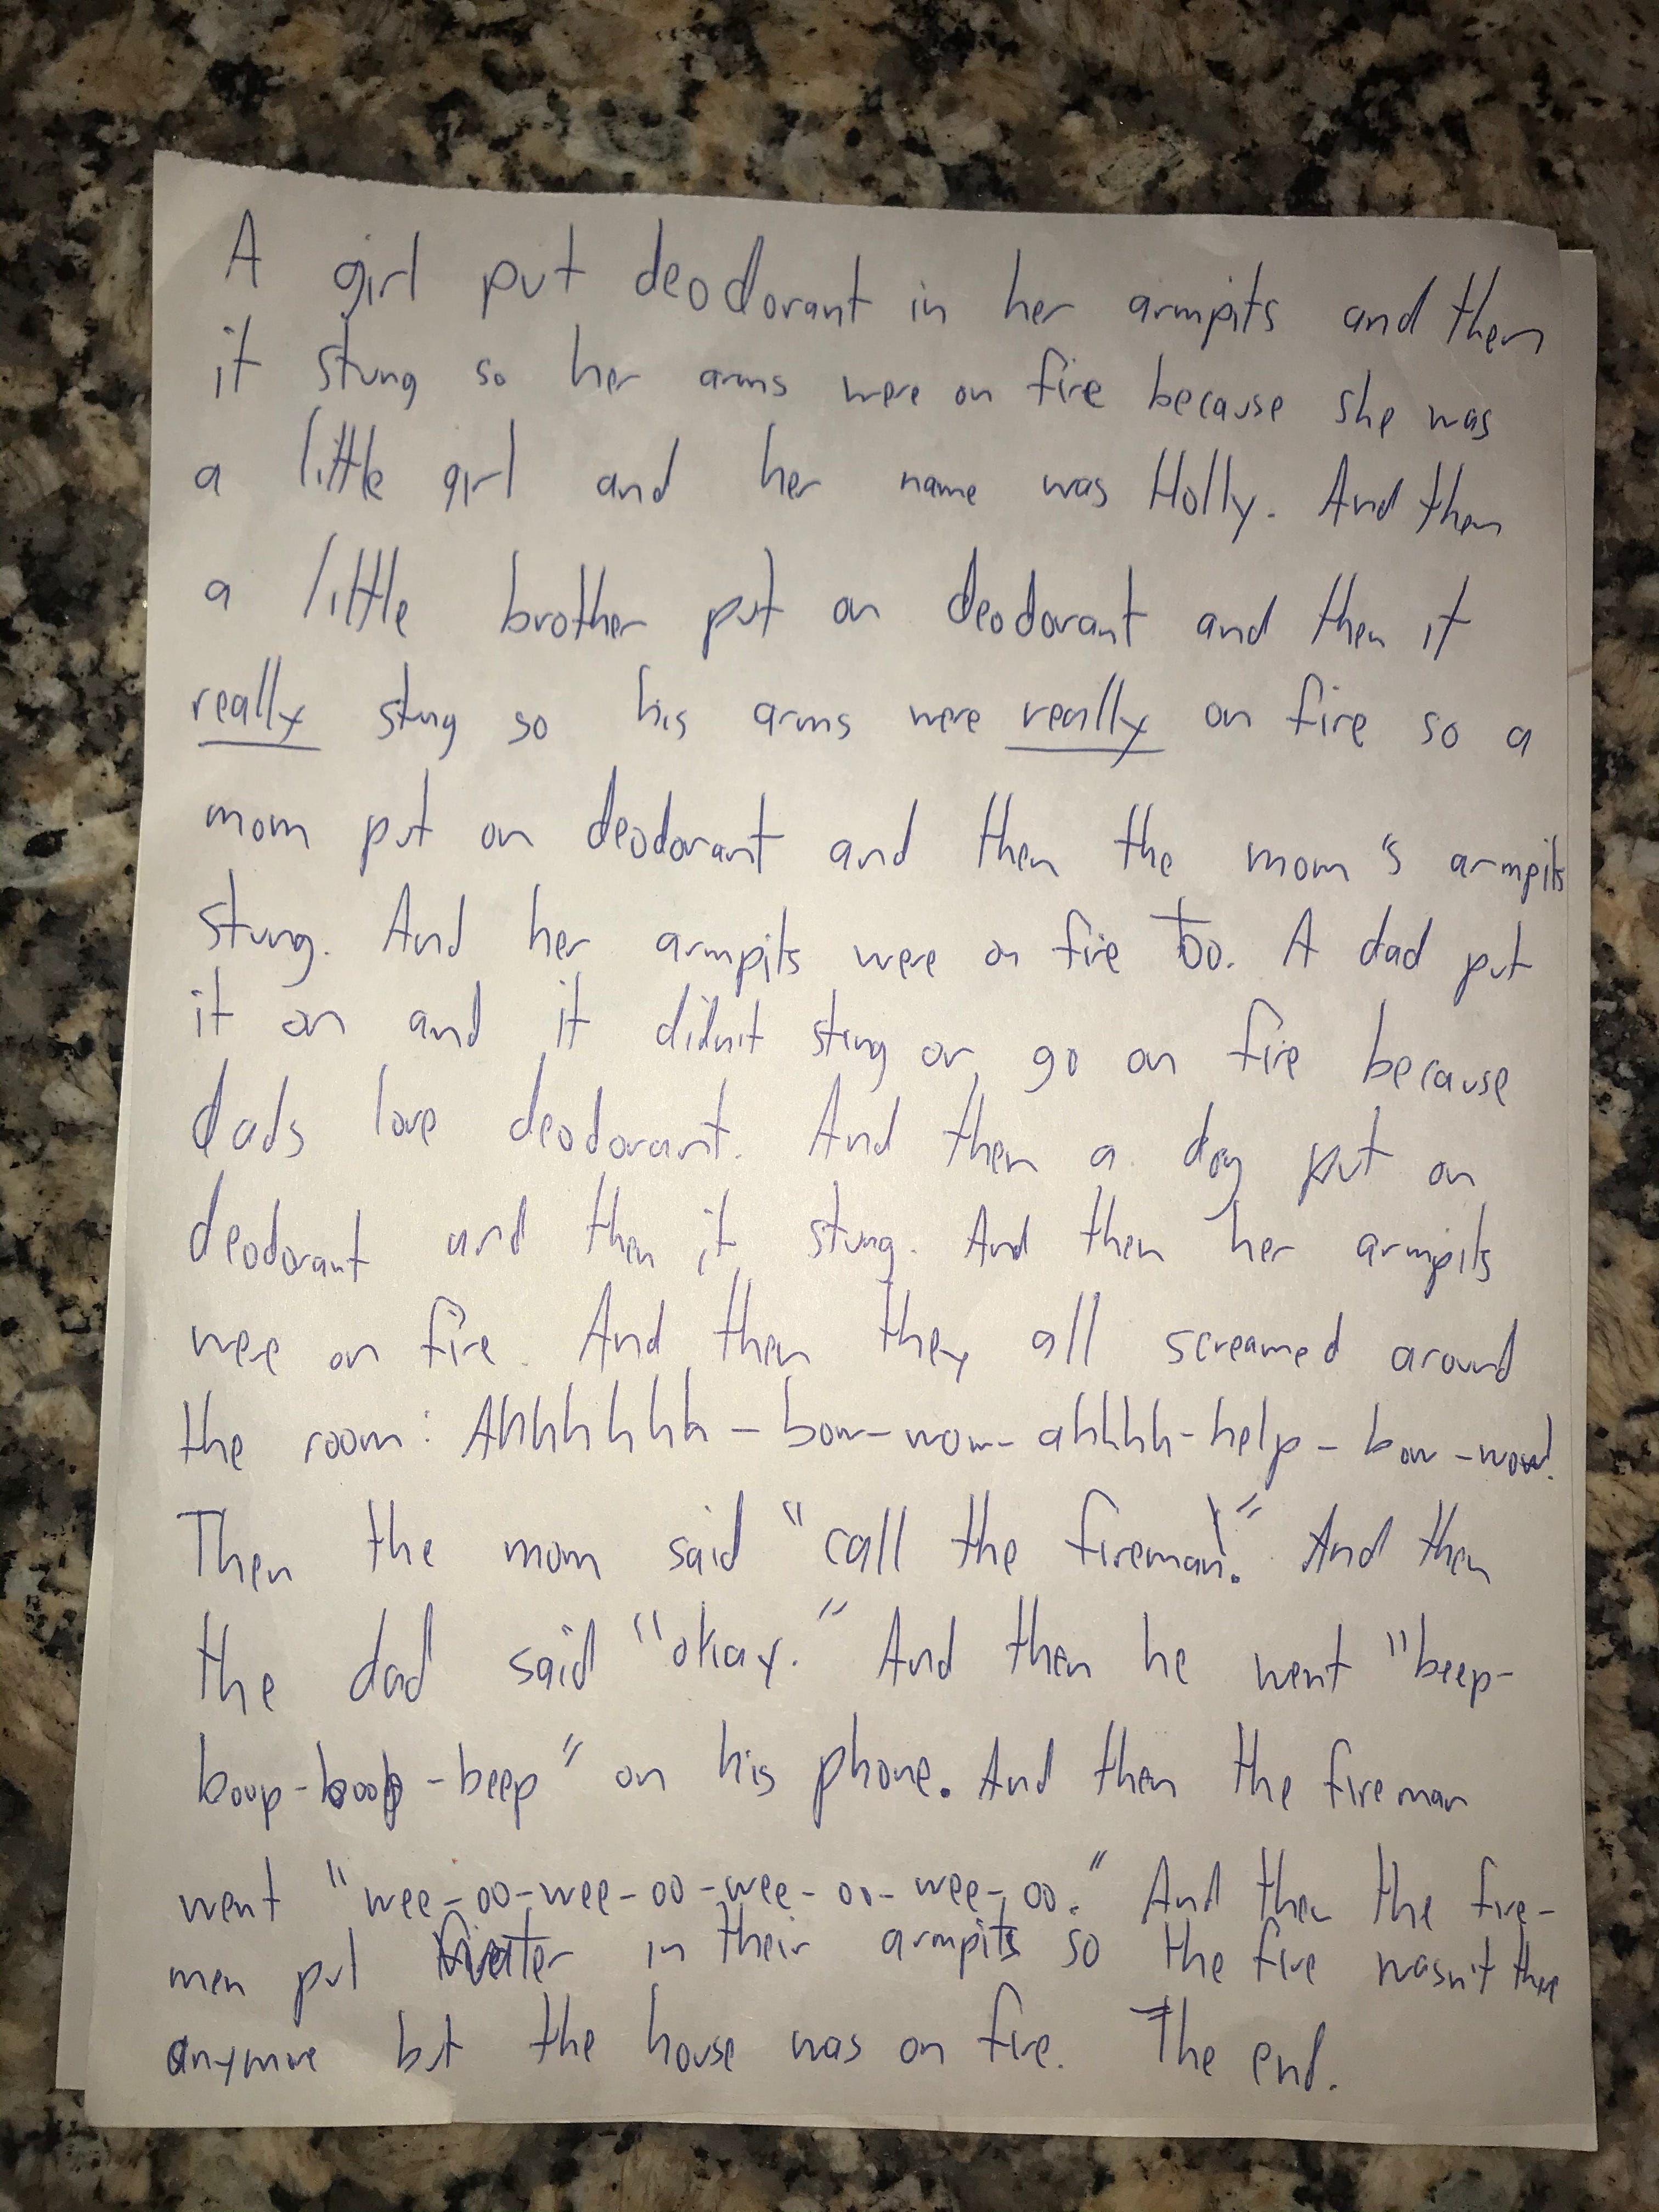 A girl put deodorant in her armpits and then
it stung so her arms were on fire because she was
a little girl and her name was Holly. And then
a little brother put on deodorant and then it
really stung so his arms were really on fire so a
mom put on deodorant and then the mom's armpits
stung. And her armpits were on fire too. A dad put
it on and it didn't sting or go on fire because
dads love deodorant. And then a dog put on
deodorant and then it stung. And then her armpits
were on fire. And then they all screamed around
the room: Ahhhhhhh-bow-wow-ahhhh-help-bow-wow!
Then the mom said "call the fireman!" And then
the dad said "okay." And then he went "beep-
boop-boop-beep" on his phone. And then the fireman
went "wee-oo-wee-oo-wee-oo-wee-oo." And then the fire-
men put water in their armpits so the fire wasn't there
anymore but the house was on fire. The end.